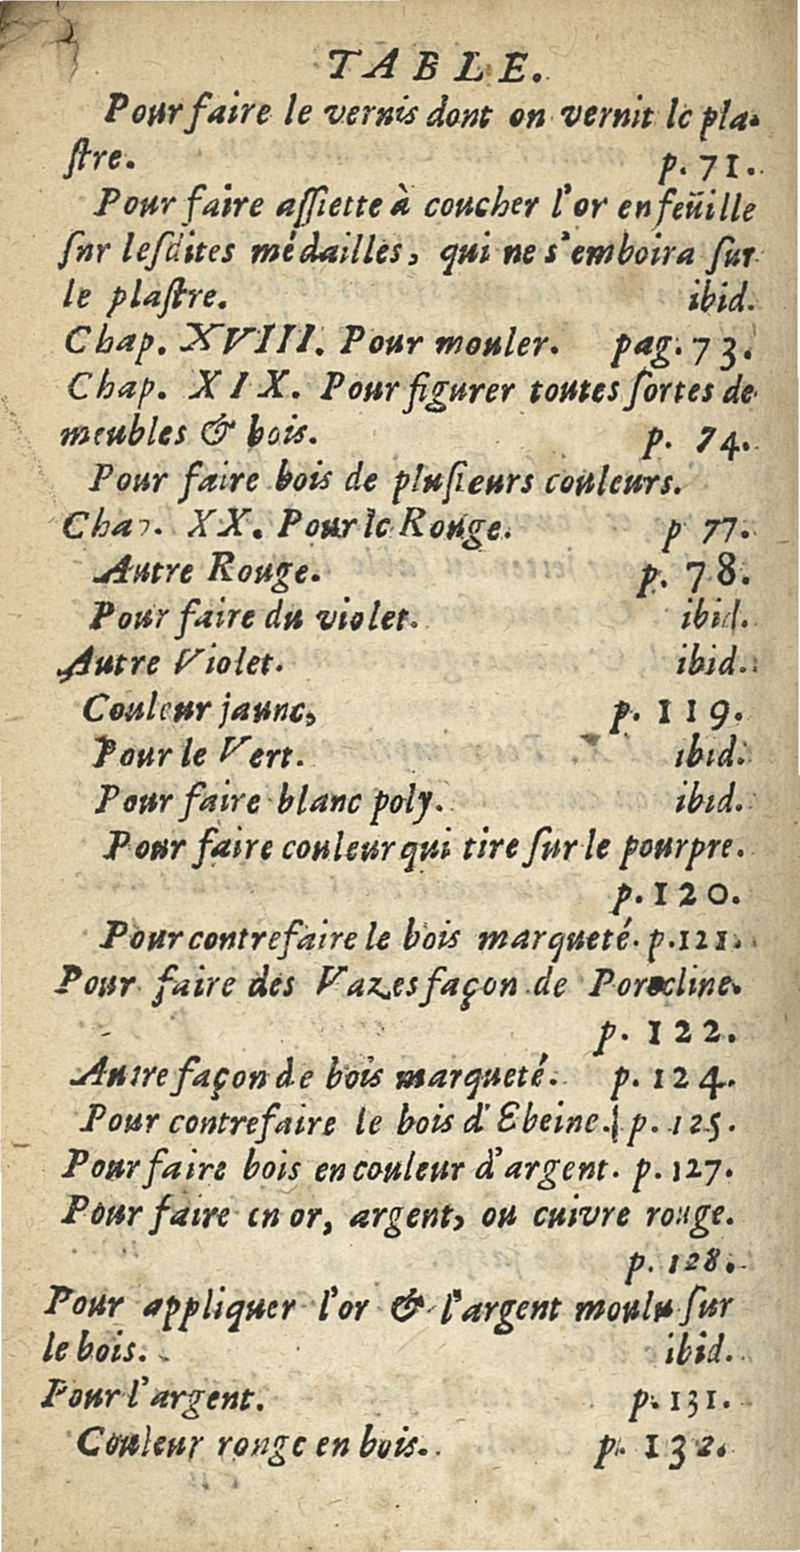 TABLE.
Pour faire le vernis dont on vernit le pla-
ſtre. p. 71.
Pour faire aſſiette à coucher l'or en feüille
ſur leſdites médailles, qui ne s'emboira ſur
le plaſtre. ibid.
Chap. XVIII. Pour mouler. pag. 73.
Chap. XIX. Pour figurer toutes ſortes de
meubles & bois. p. 74.
Pour faire bois de pluſieurs couleurs.
Chap. XX. Pour le Rouge. p 77.
Autre Rouge. p. 78.
Pour faire du violet. ibid.
Autre Violet. ibid.
Couleur jaune, p. 119.
Pour le Vert. ibid.
Pour faire blanc poly. ibid.
Pour faire couleur qui tire ſur le pourpre.
p. 120.
Pour contrefaire le bois marqueté. p. 121.
Pour faire des Vazes façon de Porocline.
p. 122.
Autre façon de bois marqueté. p. 124.
Pour contrefaire le bois d'Ebeine. p. 125.
Pour faire bois en couleur d'argent. p. 127.
Pour faire en or, argent, ou cuivre rouge.
p. 128.
Pour appliquer l'or & l'argent moulu ſur
le bois. ibid.
Pour l'argent. p. 131.
Couleur rouge en bois. p. 132.